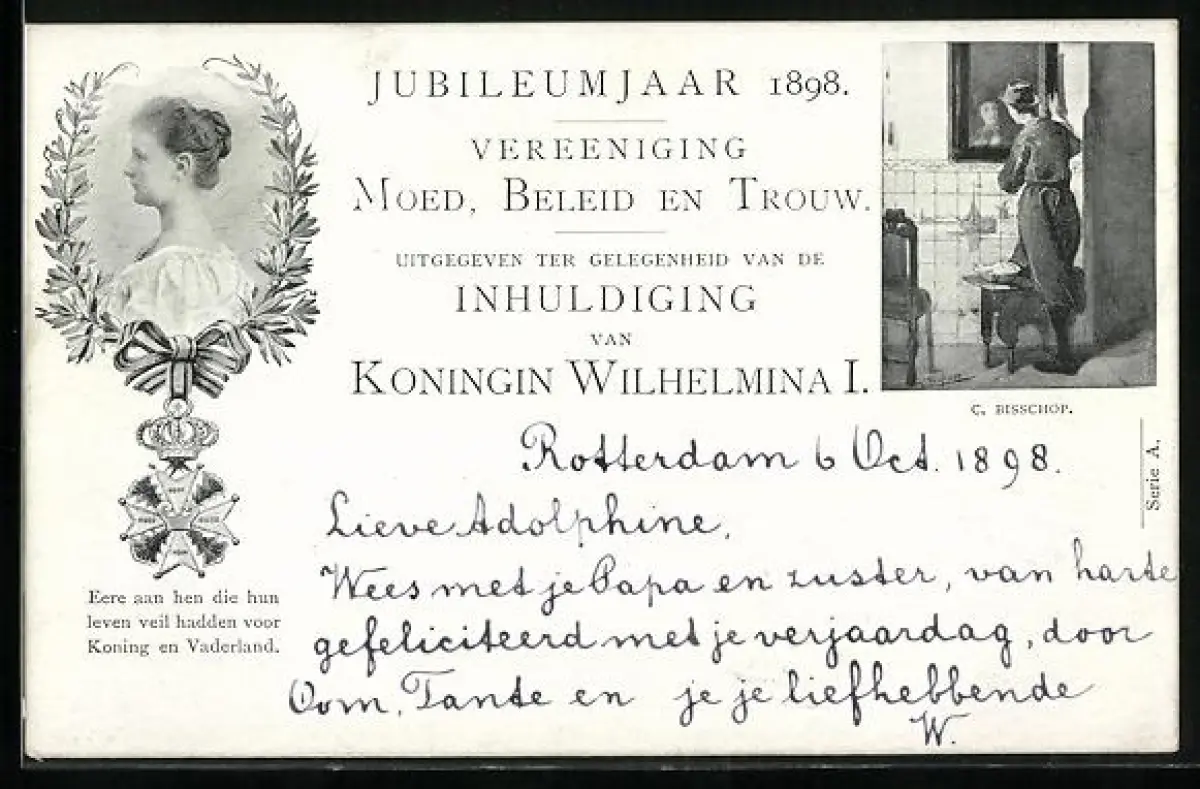 JUBILEUMJAAR 1898.
VEREENIGING
MOED, BELEID EN TROUW.
UITGEGEVEN TER GELEGENHEID VAN DE
INHULDIGING
VAN
KONINGIN WILHELMINA I.
C. BISSCHOP.
Serie A.
Eere aan hen die hun
leven veil hadden voor
Koning en Vaderland.
Rotterdam 6 Oct. 1898.
Lieve Adolphine,
Wees met je Papa en zuster, van harte
gefeliciteerd met je verjaardag, door
Oom, Tante en je je liefhebbende
W.